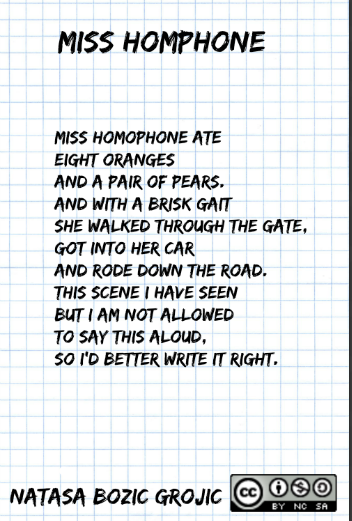 MISS HOMPHONE
MISS HOMOPHONE ATE
EIGHT ORANGES
AND A PAIR OF PEARS.
AND WITH A BRISK GAIT
SHE WALKED THROUGH THE GATE,
GOT INTO HER CAR
AND RODE DOWN THE ROAD.
THIS SCENE I HAVE SEEN
BUT I AM NOT ALLOWED
TO SAY THIS ALOUD,
SO I'D BETTER WRITE IT RIGHT.
NATASA BOZIC GROJIC
cc
BY NC SA